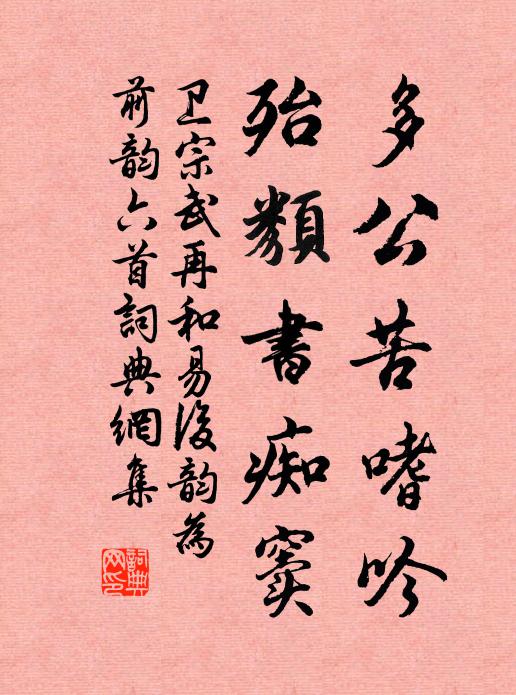 多公苦嗜吟
殆類書痴竇
卫宗武再和易後韵為
前韵六首詞典網集
詞典網印